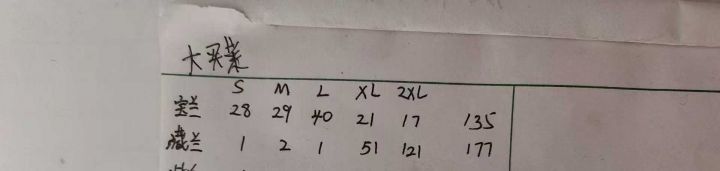 S M L XL 2XL
宝兰 28 29 40 21 17 135
藏兰 1 2 1 51 121 177